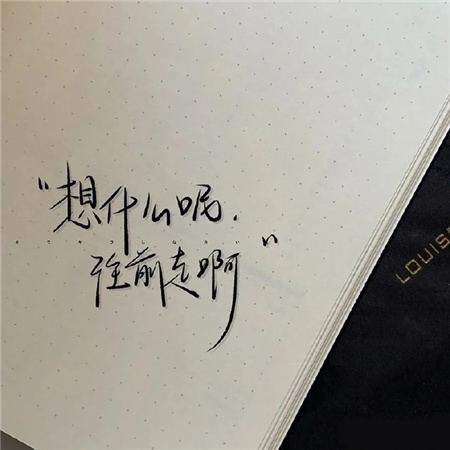 “想什么呢，
往前走啊”
LOUISE